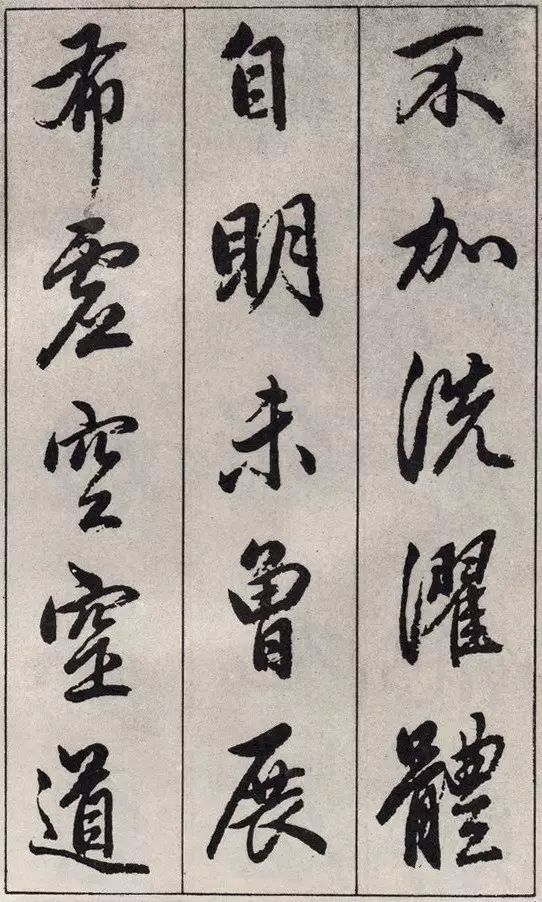 不加洗濯體
自明未曾展
布虛空窒道